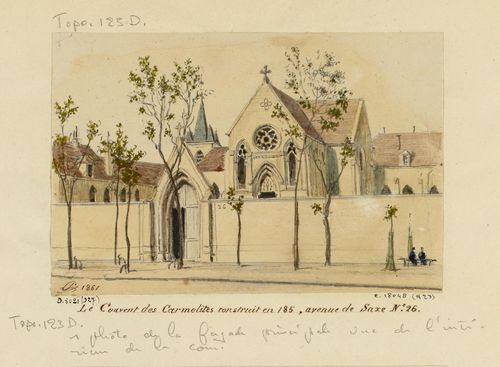 Topo. 123 D.
26
1861
D. 8021 (927)
E. 18048 (927)
Le Couvent des Carmolites construit en 185 , avenue de Saxe No. 26.
Topo. 123 D.
1 photo de la façade principale vue de l'inté-
rieur de la cour.